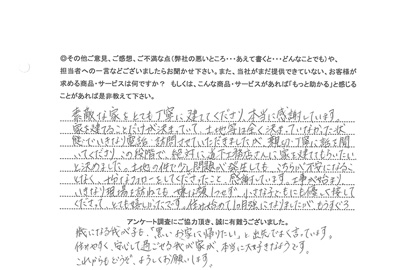 ◎その他ご意見、ご感想、ご不満な点（弊社の悪いところ・・・あえて書くと・・・どんなことでも）や、
担当者への一言などございましたらお聞かせ下さい。また、当社がまだ提供できていない、お客様が
求める商品・サービスは何ですか？ もしくは、こんな商品・サービスがあれば「もっと助かる」と感じる
ことがあれば是非教えて下さい。
素敵な家をとても丁寧に建ててくださり、本当に感謝しています。
家を建てることだけが決まっていて、土地等は全く決まっていなかった状
態でいきなり電話、訪問させていただきましたが、親切、丁寧に話を聞
いてくださり、この段階で、絶対に道下工務店さんに家を建ててもらいたい
と決めました。土地の件で少し問題が発生しても、こちらが不安になる
ことなく、フォローをしてくださったこと、感謝しています。工事が始まり、
いきなり現場を訪ねても、嫌な顔ひとつせず、小さな子どもにも優しく接して
くださって、とても嬉しかったです。住み始めて10ヶ月強になりましたが、もうすぐ3
アンケート調査にご協力頂き、誠に有難うございました。
歳になる我が子も、「思いお家に帰りたい。」と出先でよく言っています。
住みやすく、安心して過ごせる我が家が、本当に大好きなようです。
これからもどうぞ、よろしくお願いします。